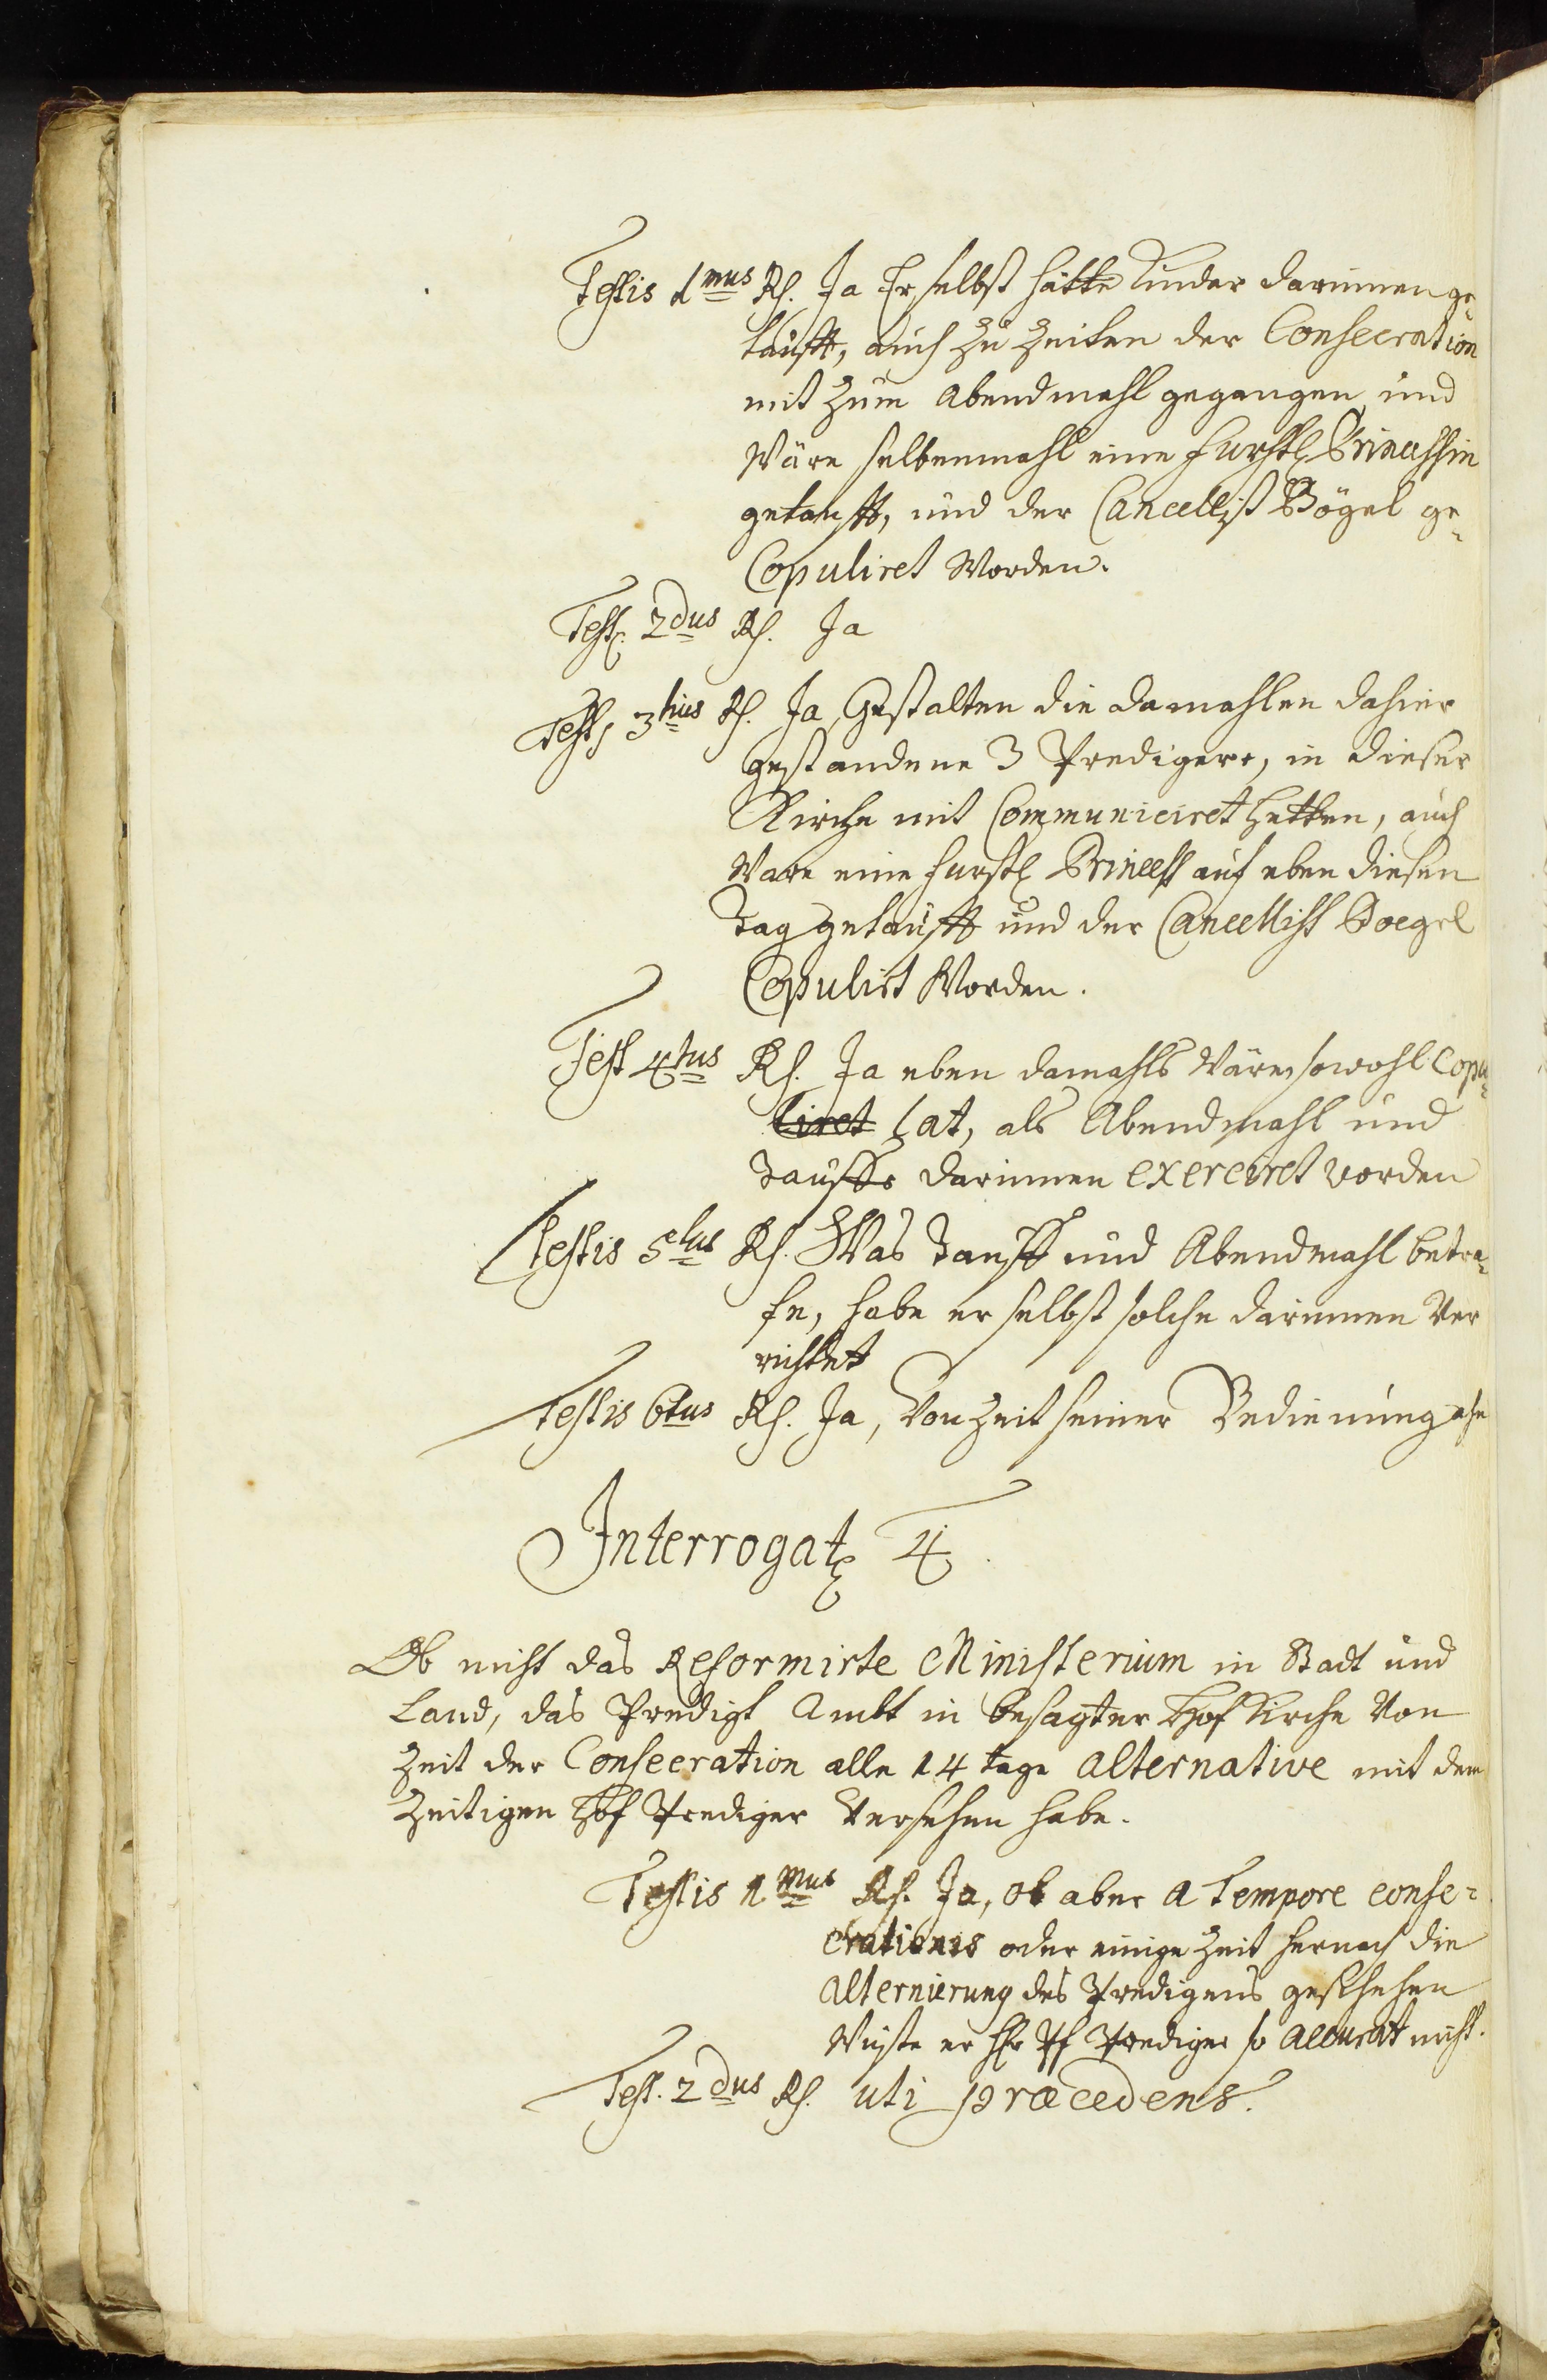 Testis 1mus Rs. Ja Er selbst hätte Kinder darinnen ge-
taufft, auch zu Zeiten der Consecration
mit zum Abendmahl gegangen und
wäre selbenmahl eine Furstl Princessin
getaufft, und der Cancellist Bögel ge-
Copuliret worden.
Test. 2dus Rs. Ja
Test. 3tius Rs. Ja, Gestalten die damahlen dahier
gestandene 3 Predigere, in dieser
Kirche mit Communiciret hetten, auch
ware eine furstl Princess auf eben diesen
Tag getaufft und der Cancellist Boegel
Copulirt worden.
Test 4tus Rs. Ja eben damahls wäre sowohl Copu-
liret lat, als Abendmahl und
Tauffe darinnen exerciret worden
Testis 5tus Rs. Was Tauff und Abendmahl betra-
fe, habe er selbst solche darinnen ver
richtet
Testis 6tus Rs. Ja, von Zeit seiner Bedienung
Interrogat 4
Ob nicht das Reformirte Ministerium in Stadt und
Land, das Predigt Ambt in besagter Hof Kirche von
Zeit der Consecration alle 14 tage alternative mit dem
Zeitigen Hof Prediger versehen habe.
Testis 1mus Rs. Ja, ob aber a Tempore conse-
crationis oder einige Zeit hernach die
Alternierung des Predigens geschehen
wuste er Prediger so accurat nicht.
Test. 2dus Rs. uti præcedens.